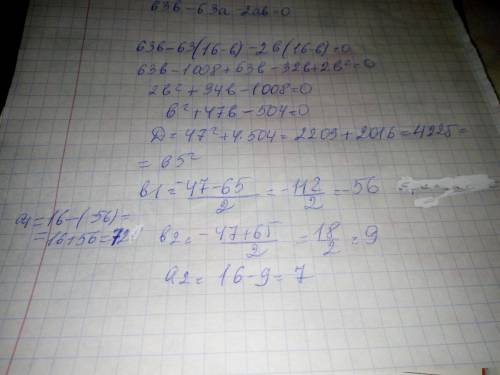 63в-63а-2ав=0
63в-63(16-в)-2в(16-в)=0
63в-1008+63в-32в+2в²=0
2в²+94в-1008=0
в²+47в-504=0
D=47²+4·504=2209+2016=4225=
=65²
в1=-47-65/2=-112/2=-56
а1=16-(-56)=
=16+56=72
в2=-47+65/2=18/2=9
а2=16-9=7